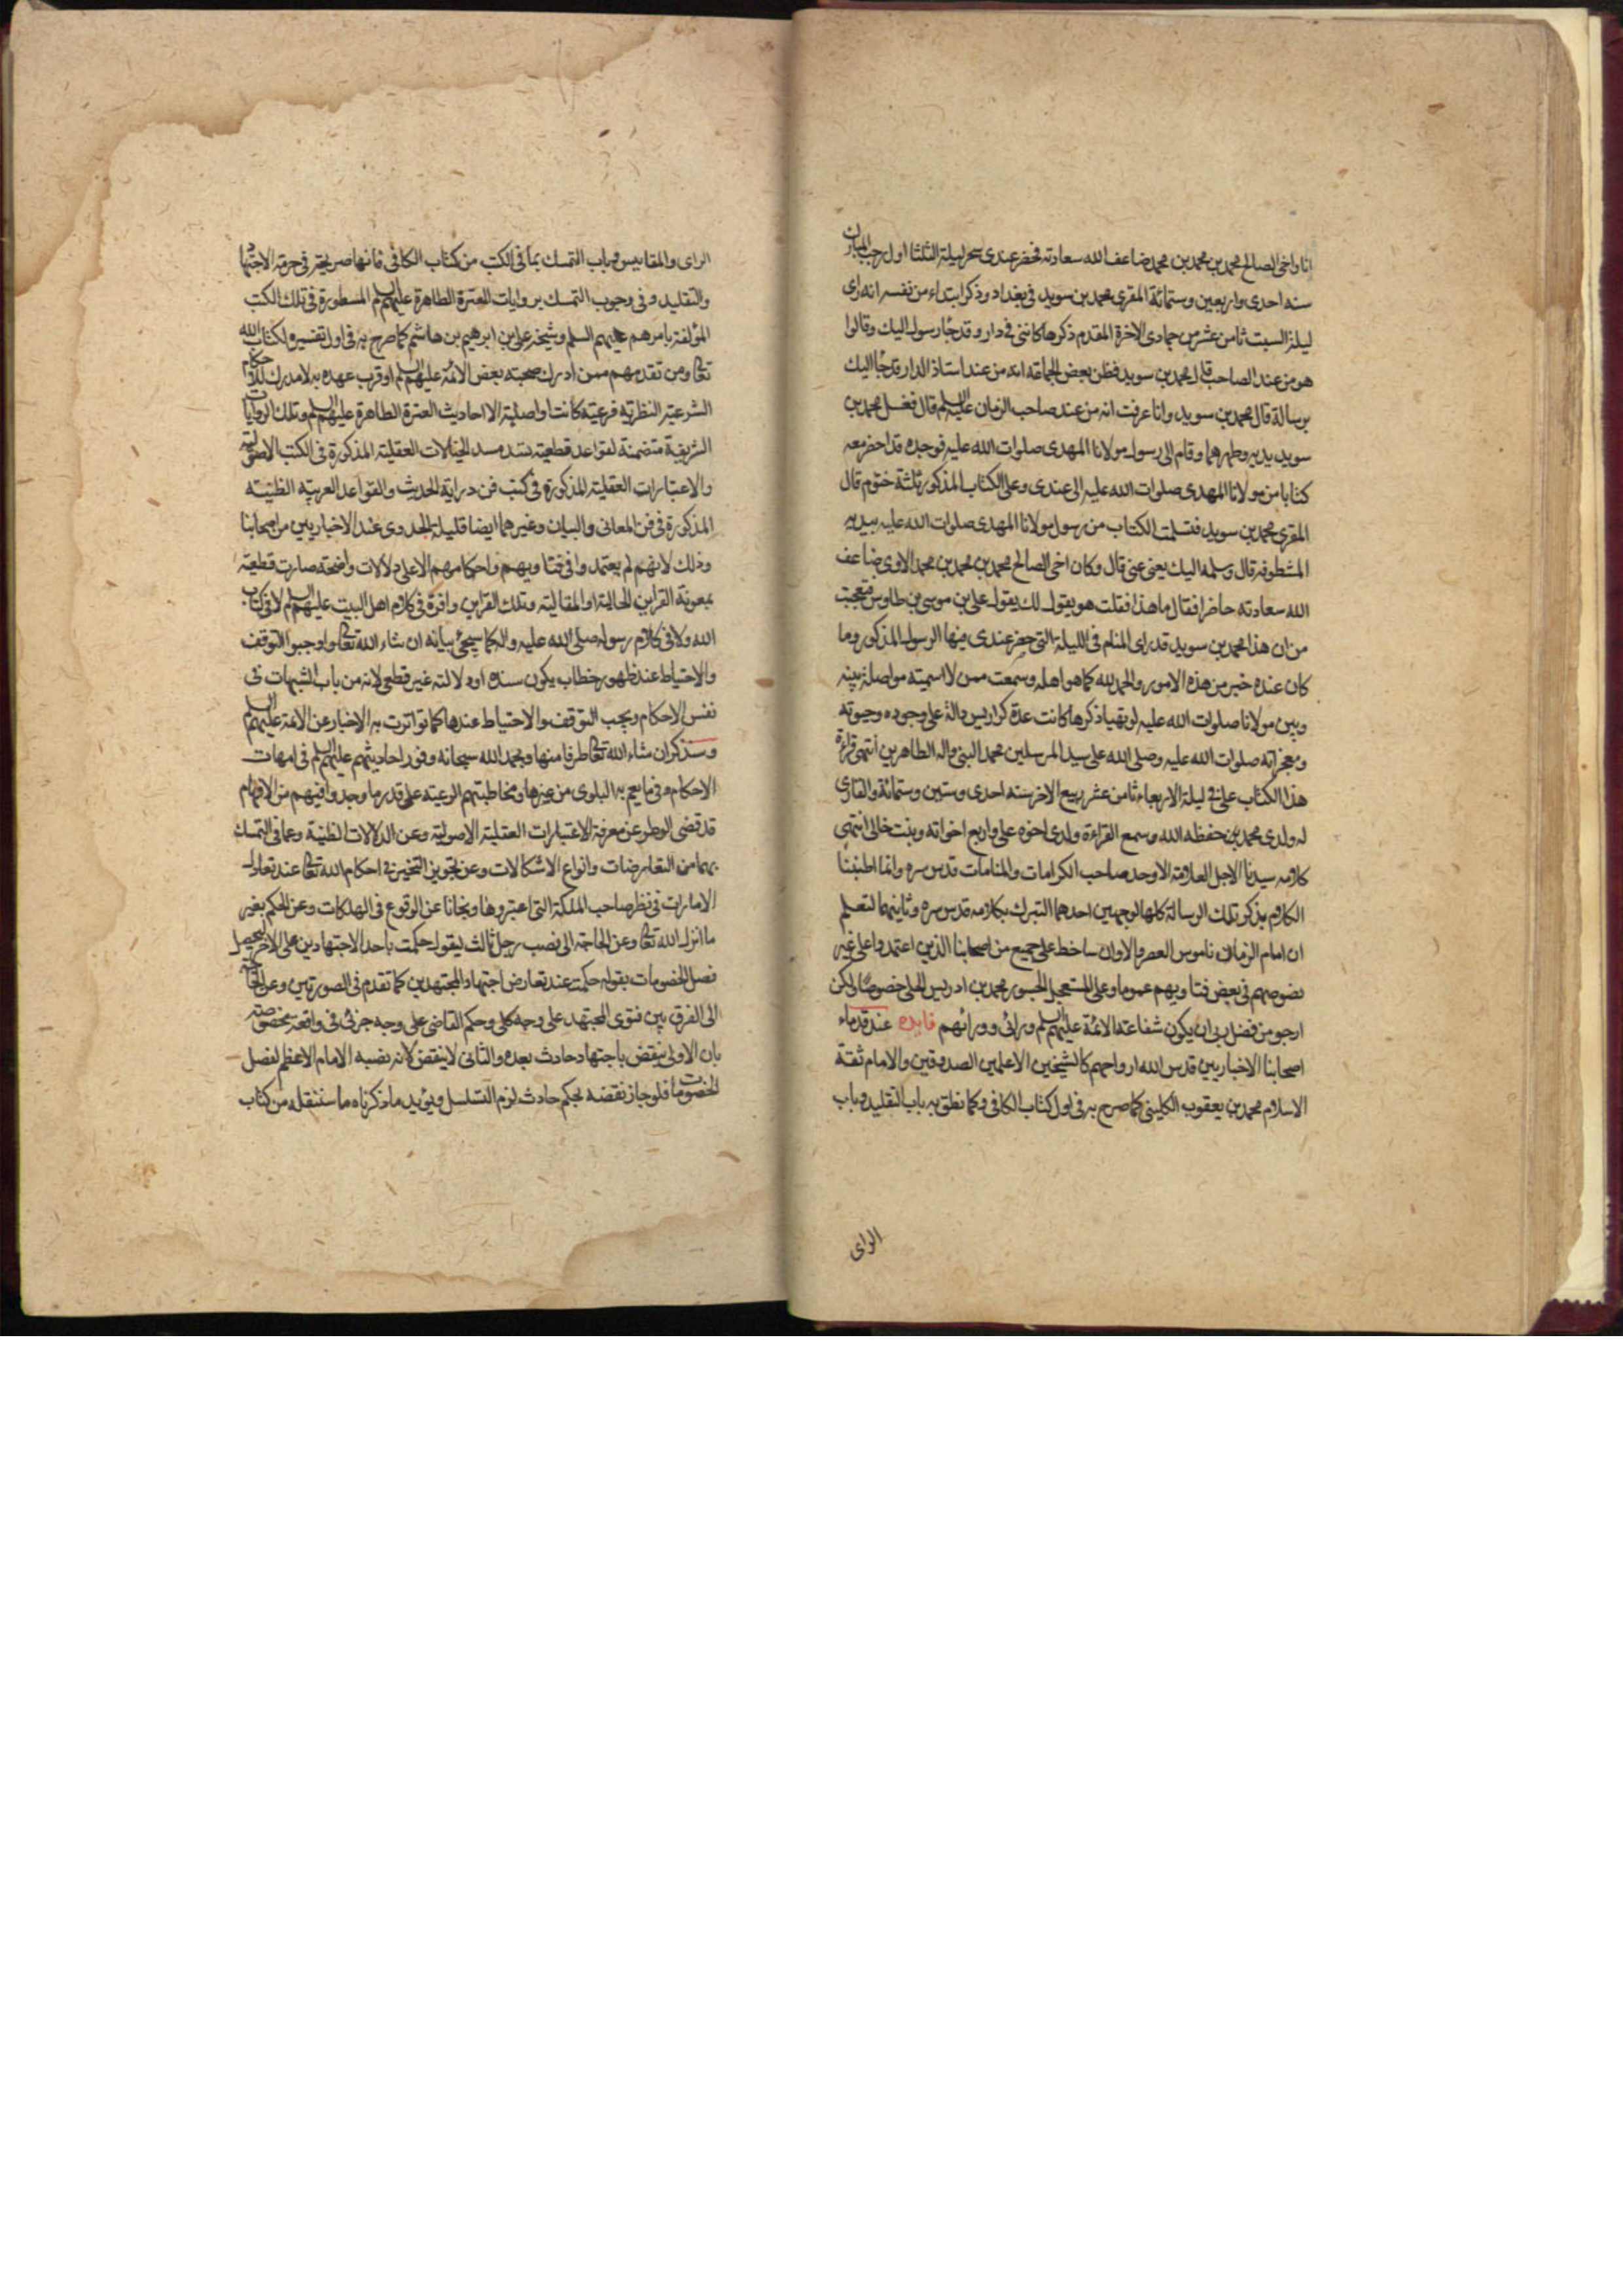 انا واخى الصالح محمد بن محمد بن محمد ضاعف الله سعادته فحضر عندى سحر ليلة الثلثا اول رجب المبارك
سنه احدى واربعين وستمائة المقرى محمد بن سويد فى بغداد وذكر ابتداء من نفسه انه راى
ليلة السبت ثامن عشر من جمادى الاخرة المقدم ذكرها كاننى فى دار وقد جاء رسول اليك وقالوا
هو من عند الصاحب قال محمد بن سويد فظن بعض الجماعة انه من عند استاذ الدار قد جاء اليك
برسالة قال محمد بن سويد وانا عرفت انه من عند صاحب الزمان عليه السلم قال فغسل محمد بن
سويد يديه وطهرهما وقام الى رسول مولانا المهدى صلوات الله عليه فوجده قد احضر معه
كتابا من مولانا المهدى صلوات الله عليه الى عندى وعلى الكتاب المذكور ثلثة ختوم قال
المقرى محمد بن سويد فتسلمت الكتاب من رسول مولانا المهدى صلوات الله عليه بيديه
المشطوفه قال وسلمه اليك يعنى عنى قال وكان اخى الصالح محمد بن محمد بن محمد الاوى ضاعف
الله سعادته حاضرا فقال ما هذا فقلت هو يقول لك يقول على بن موسى بن طاوس فتعجبت
من ان هذا محمد بن سويد قد راى المنام فى الليلة التى حضر عندى فيها الرسول المذكور وما
كان عنده خبر من هذه الامور والحمد لله كما هو اهله وسمعت ممن لا اسميته مواصلة بينه
وبين مولانا صلوات الله عليه لو تهيا ذكرها كانت عدة كراريس دالة على وجوده وحيوته
ومعجزاته صلوات الله عليه وصلى الله على سيد المرسلين محمد النبى واله الطاهرين انتهى قراءة
هذا الكتاب على فى ليلة الاربعاء ثامن عشر ربيع الاخر سنه احدى وستين وستمائة والقارى
له ولدى محمد بن حفظه الله وسمع القراءة ولدى اخوه على واربع اخواته وبنت خالى انتهى
كلامه سيدنا الاجل العلامة الاوحد صاحب الكرامات والمنامات قدس سره وانما اطنبنا
الكلام بذكر تلك الرسالة كلها لوجهين احدهما التبرك بكلامه قدس سره وثانيهما لتعلم
ان امام الزمان ناموس العصر والاوان ساخط على جميع من اصحابنا الذين اعتمدوا على غير
نصوصهم فى بعض فتاويهم عموما وعلى المستعجل الجسور محمد بن ادريس الحلى خصوصا لكن
ارجو من فضل ربى ان يكون شفاعة الائمة عليهم السلم ورائى وورائهم فايده عند قدماء
اصحابنا الاخباريين قدس الله ارواحهم كالشيخين الاعلمين الصدوقين والامام ثقة
الاسلام محمد بن يعقوب الكلينى كما صرح به فى اول كتاب الكافى وكما نطق به باب التقليد وباب
الراى
الراى والمقاييس وباب التمسك بما فى الكتب من كتاب الكافى فانها صريحة فى حرمة الاجتهاد
والتقليد وفى وجوب التمسك بروايات العترة الطاهرة عليهم السلم المسطورة فى تلك الكتب
المؤلفة بامرهم عليهم السلم وشيخه على بن ابرهيم بن هاشم كما صرح به فى اول تفسيره لكتاب الله
تعالى ومن تقدمهم ممن ادرك صحبته بعض الائمة عليهم السلم او قرب عهده به لا مدرك للاحكام
الشرعية النظرية فرعية كانت او اصلية الا احاديث العترة الطاهرة عليهم السلم وتلك الروايات
الشريفة متضمنة لقواعد قطعية تسد مسد الخيالات العقلية المذكورة فى الكتب الاصولية
والاعتبارات العقلية المذكورة فى كتب فن دراية الحديث والقواعد العربيه الظنيه
المذكورة فى فن المعانى والبيان وغيرهما ايضا قليلة الجدوى عند الاخباريين من اصحابنا
وذلك لانهم لم يعتمدوا فى فتاويهم واحكامهم الا على دلالات واضحة صارت قطعية
بمعونة القراين الحالية او المقالية وتلك القراين وافرة فى كلام اهل البيت عليهم السلم لا فى كتاب
الله ولا فى كلام رسوله صلى الله عليه واله كما سيجئ بيانه ان شاء الله تعالى واوجبوا التوقف
والاحتياط عند ظهور خطاب يكون سنده او دلالته غير قطعى لانه من باب الشبهات فى
نفس الاحكام ويجب التوقف والاحتياط عندها كما تواترت به الاخبار عن الائمة عليهم السلم
وسنذكر ان شاء الله تعالى طرفا منها وبحمد الله سبحانه وفور احاديثهم عليهم السلم فى امهات
الاحكام وفيما يعم به البلوى من غيرها ومخاطبتهم الرعية على قدر ما وجدوا فيهم من الافهام
قد قضى الوطر عن معرفة الاعتبارات العقلية الاصولية وعن الدلالات الظنية وعما فى التمسك
بهما من التعارضات وانواع الاشكالات وعن تجويز التخير فى احكام الله تعالى عند تعادل
الامارات فى نظر صاحب الملكة التى اعتبروها ونجانا عن الوقوع فى الهلكات وعن الحكم بغير
ما انزل الله تعالى وعن الحاجة الى نصب رجل ثالث ليقول حكمت باحد الاجتهادين على الاخر ليحصل
فصل الخصومات بقوله حكمت عند تعارض اجتهاد المجتهدين كما تقدم فى الصورتين وعن الحاجة
الى الفرق بين فتوى المجتهد على وجه كلى وحكم القاضى على وجه جزئى فى واقعة مخصوصة
بان الاولى ينقض باجتهاد حادث بعده والثانى لا ينقض لانه نصبه الامام الاعظم لفصل
الخصومات فلو جاز نقضه بحكم حادث لزم التسلسل ويؤيد ما ذكرناه ما سننقله من كتاب